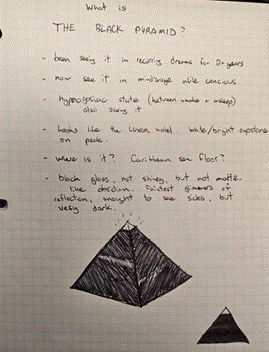 What is
THE BLACK PYRAMID?
- been seeing it in recurring dreams for 2+ years
- now see it in mind's eye while concious
- hypnopompic state (between awake + asleep)
also seeing it.
- Looks like the Luxor hotel. White/bright capstone
on peak.
- where is it? Caribbean sea floor?
- black glass, not shiney, but not matte.
like obsidian. Faintest glimmers of
reflection, enought to see sides, but
very dark.